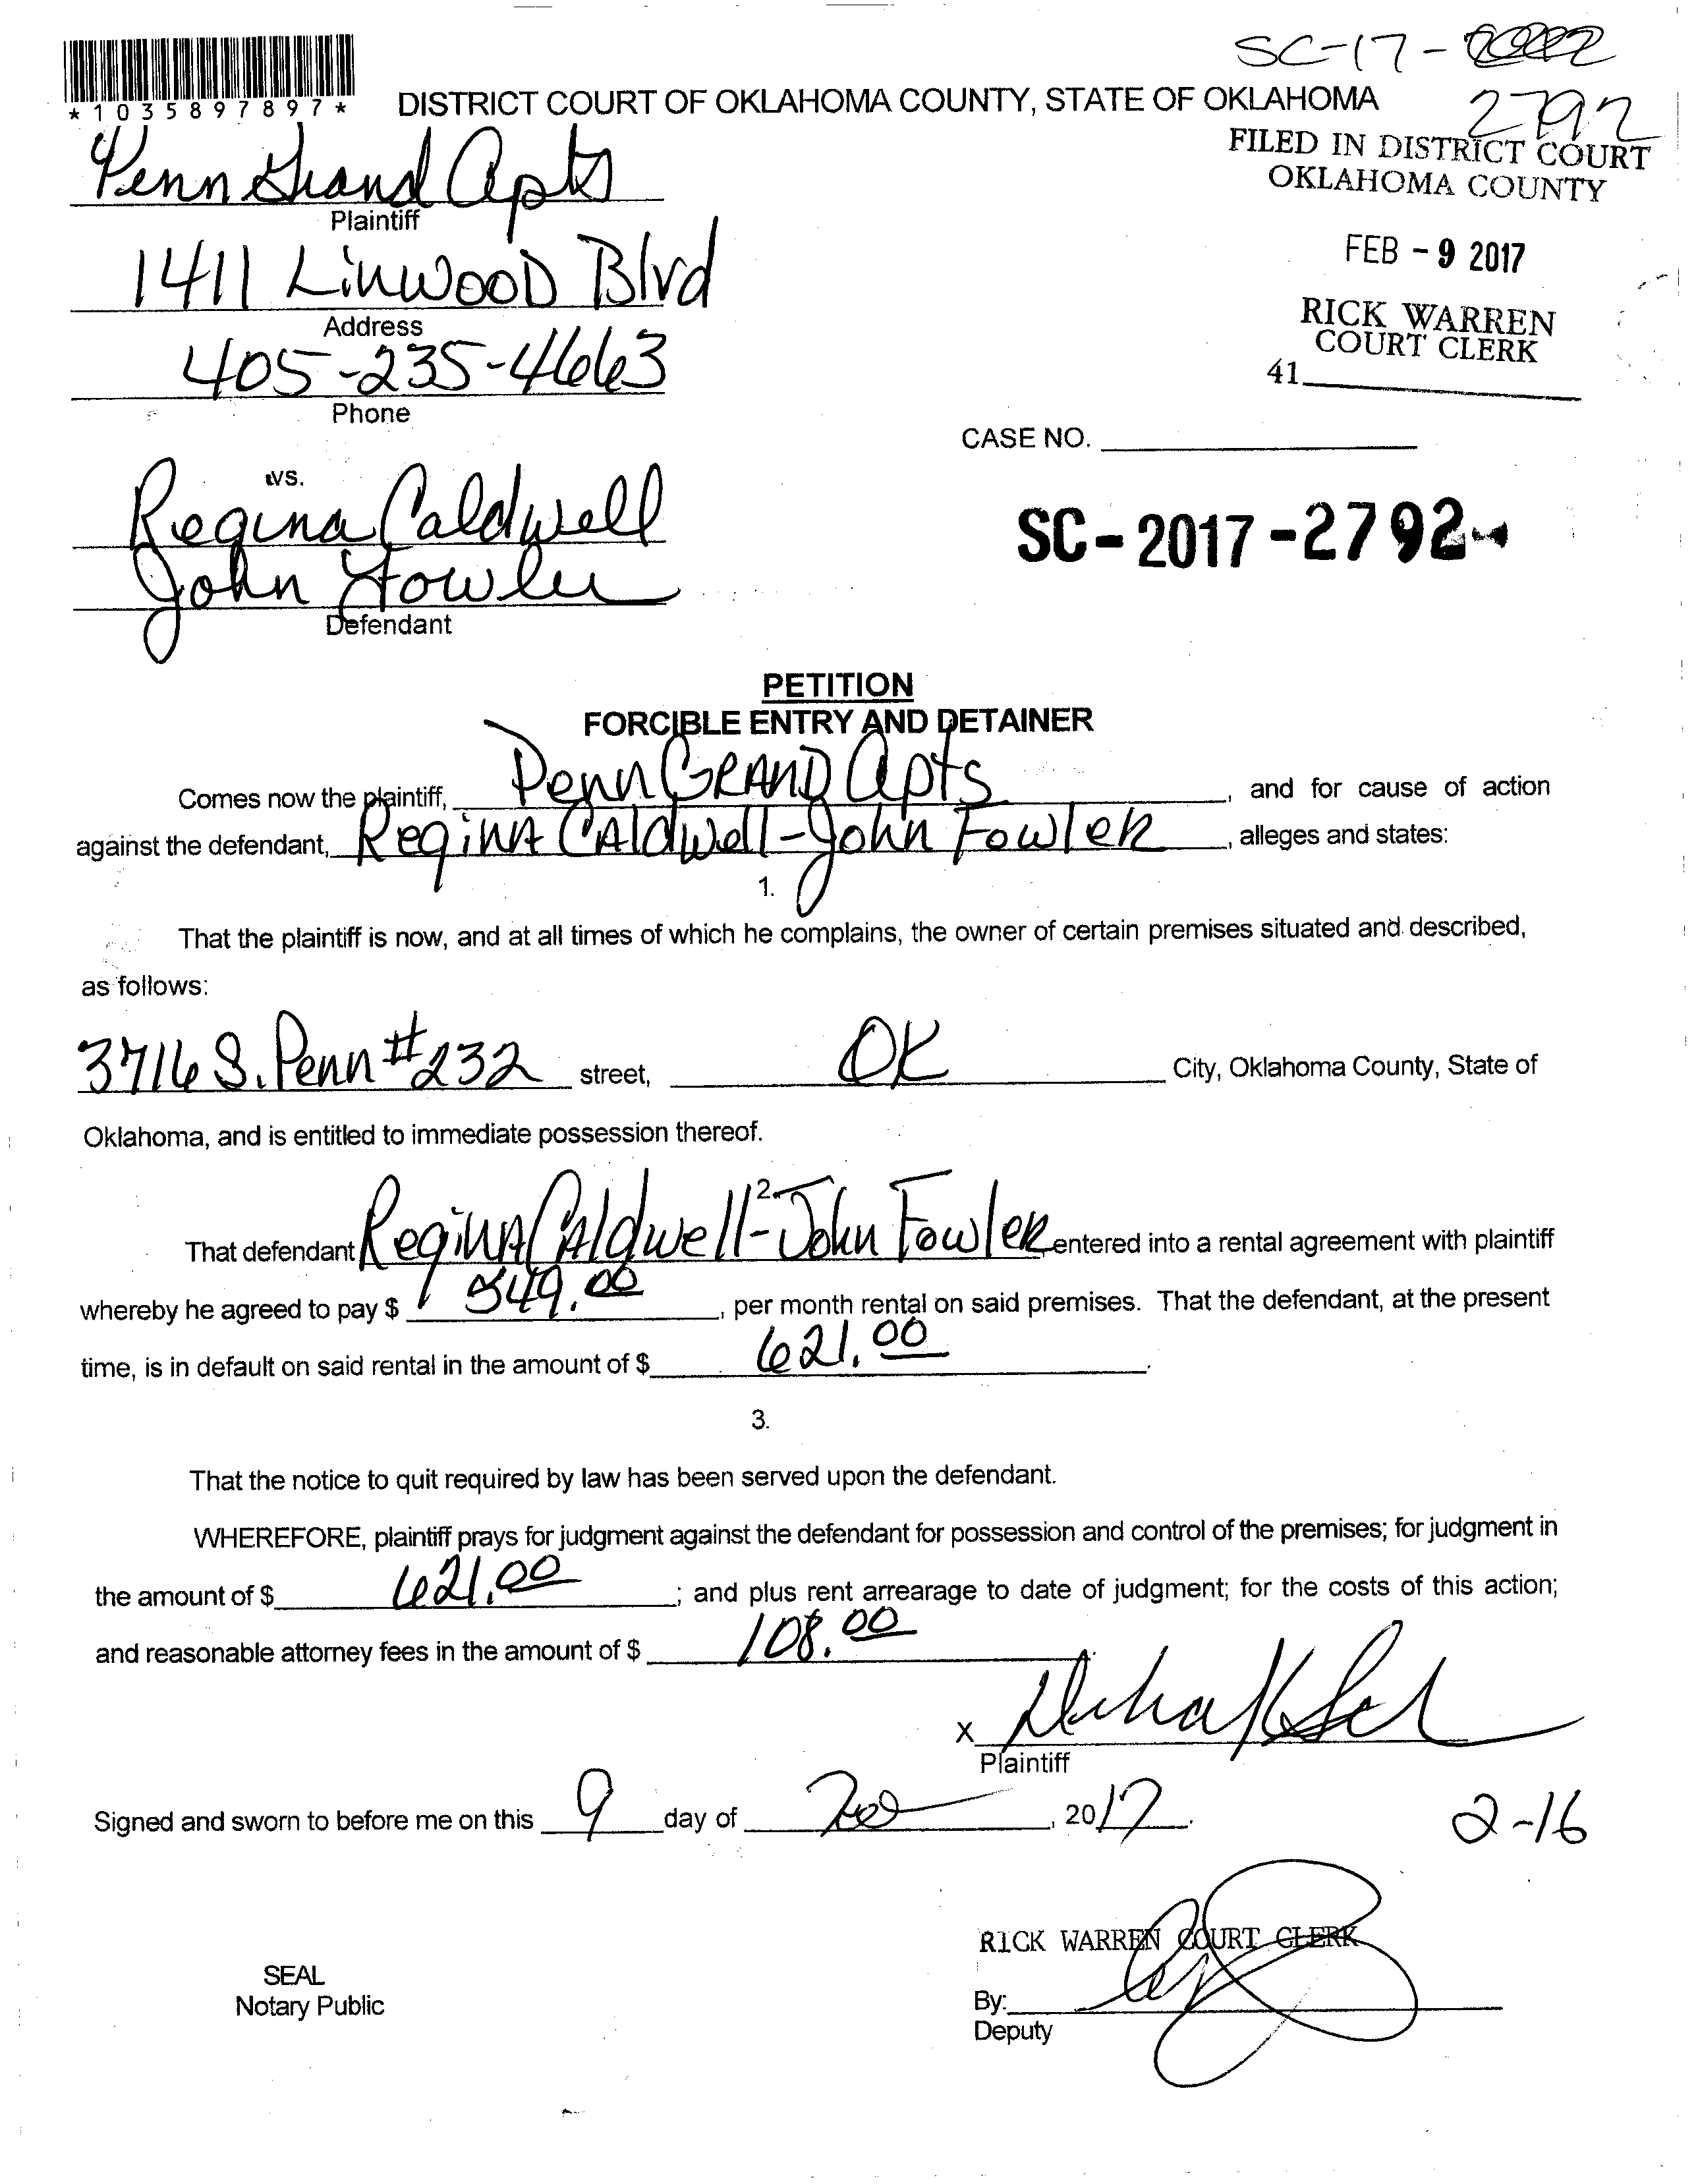 SC-17-
*1035897897*
DISTRICT COURT OF OKLAHOMA COUNTY, STATE OF OKLAHOMA
2792
FILED IN DISTRICT COURT
OKLAHOMA COUNTY
FEB - 9 2017
RICK WARREN
COURT CLERK
41
Penn Grand Apts
Plaintiff
1411 Linwood Blvd
Address
405-235-4663
Phone
CASE NO.
vs.
SC-2017-2792
Regina Caldwell
John Fowler
Defendant
PETITION
FORCIBLE ENTRY AND DETAINER
Comes now the plaintiff, Penn Grand Apts, and for cause of action
against the defendant, Regina Caldwell-John Fowler, alleges and states:
1.
That the plaintiff is now, and at all times of which he complains, the owner of certain premises situated and described,
as follows:
3716 S. Penn #232 street, OK City, Oklahoma County, State of
Oklahoma, and is entitled to immediate possession thereof.
2.
That defendant Regina Caldwell-John Fowler entered into a rental agreement with plaintiff
whereby he agreed to pay $ 549.00, per month rental on said premises. That the defendant, at the present
time, is in default on said rental in the amount of $ 621.00.
3.
That the notice to quit required by law has been served upon the defendant.
WHEREFORE, plaintiff prays for judgment against the defendant for possession and control of the premises; for judgment in
the amount of $ 621.00; and plus rent arrearage to date of judgment; for the costs of this action;
and reasonable attorney fees in the amount of $ 108.00.
X
Plaintiff
Signed and sworn to before me on this 9 day of Feb, 2017.
2-16
RICK WARREN COURT CLERK
SEAL
Notary Public
By:
Deputy